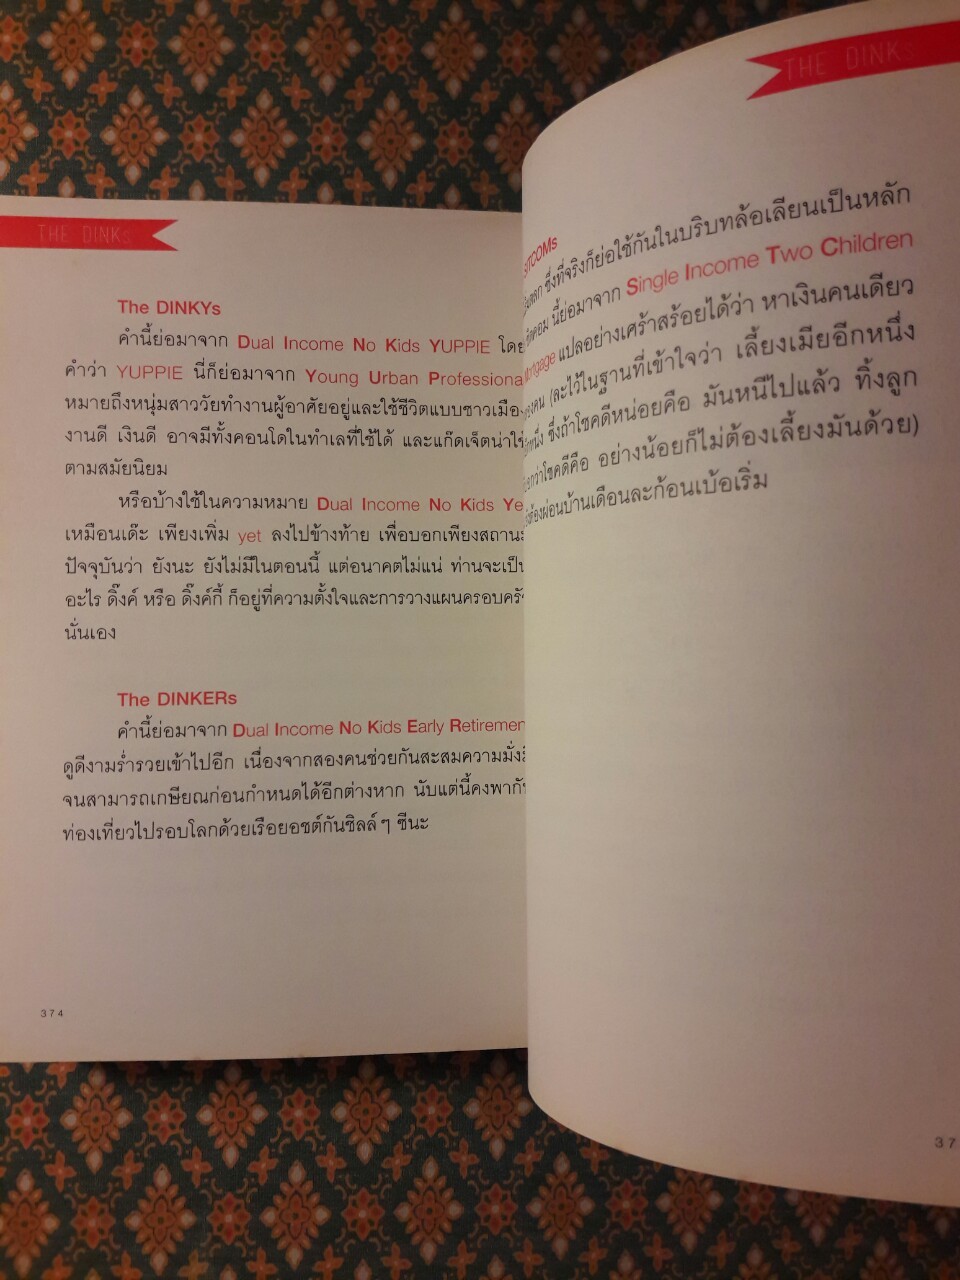 THE DINKs
The DINKYs
คำนี้ย่อมาจาก Dual Income No Kids YUPPIE โดย
คำว่า YUPPIE นี่ก็ย่อมาจาก Young Urban Professional
หมายถึงหนุ่มสาววัยทำงานผู้อาศัยอยู่และใช้ชีวิตแบบชาวเมือง
งานดี เงินดี อาจมีทั้งคอนโดในทำเลที่ใช้ได้ และแก๊ดเจ็ตน่าใช้
ตามสมัยนิยม
หรือบ้างใช้ในความหมาย Dual Income No Kids Ye
เหมือนเด๊ะ เพียงเพิ่ม yet ลงไปข้างท้าย เพื่อบอกเพียงสถานะ
ปัจจุบันว่า ยังนะ ยังไม่มีในตอนนี้ แต่อนาคตไม่แน่ ท่านจะเป็น
อะไร ดิ๊งค์ หรือ ดิ๊งค์กี้ ก็อยู่ที่ความตั้งใจและการวางแผนครอบครัว
นั่นเอง
The DINKERs
คำนี้ย่อมาจาก Dual Income No Kids Early Retirement
ดูดีงามร่ำรวยเข้าไปอีก เนื่องจากสองคนช่วยกันสะสมความมั่งมี
จนสามารถเกษียณก่อนกำหนดได้อีกต่างหาก นับแต่นี้คงพากัน
ท่องเที่ยวไปรอบโลกด้วยเรือยอชต์กันชิลล์ ๆ ซีนะ
374
THE DINKs
SITCOMs
ซึ่งที่จริงก็ย่อใช้กันในบริบทล้อเลียนเป็นหลัก
นี้ย่อมาจาก Single Income Two Children
Mortgage แปลอย่างเศร้าสร้อยได้ว่า หาเงินคนเดียว
(ละไว้ในฐานที่เข้าใจว่า เลี้ยงเมียอีกหนึ่ง
ซึ่งถ้าโชคดีหน่อยคือ มันหนีไปแล้ว ทิ้งลูก
อกว่าโชคดีคือ อย่างน้อยก็ไม่ต้องเลี้ยงมันด้วย)
ต้องผ่อนบ้านเดือนละก้อนเบ้อเริ่ม
37